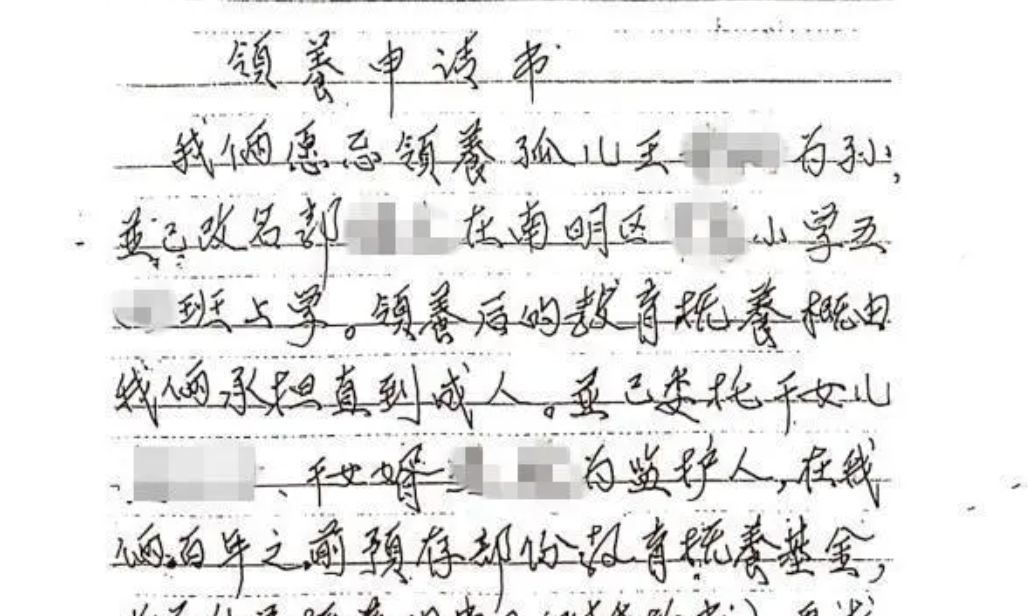 领養申请书
我俩愿意领養孤儿王 为孙,
並已改名郭 在南明区 小学五
班上学。领養后的教育抚養概由
我俩承担直到成人。並已委托干女儿
、干女婿 为监护人,在我
俩百年之前预存部份教育抚養基金,